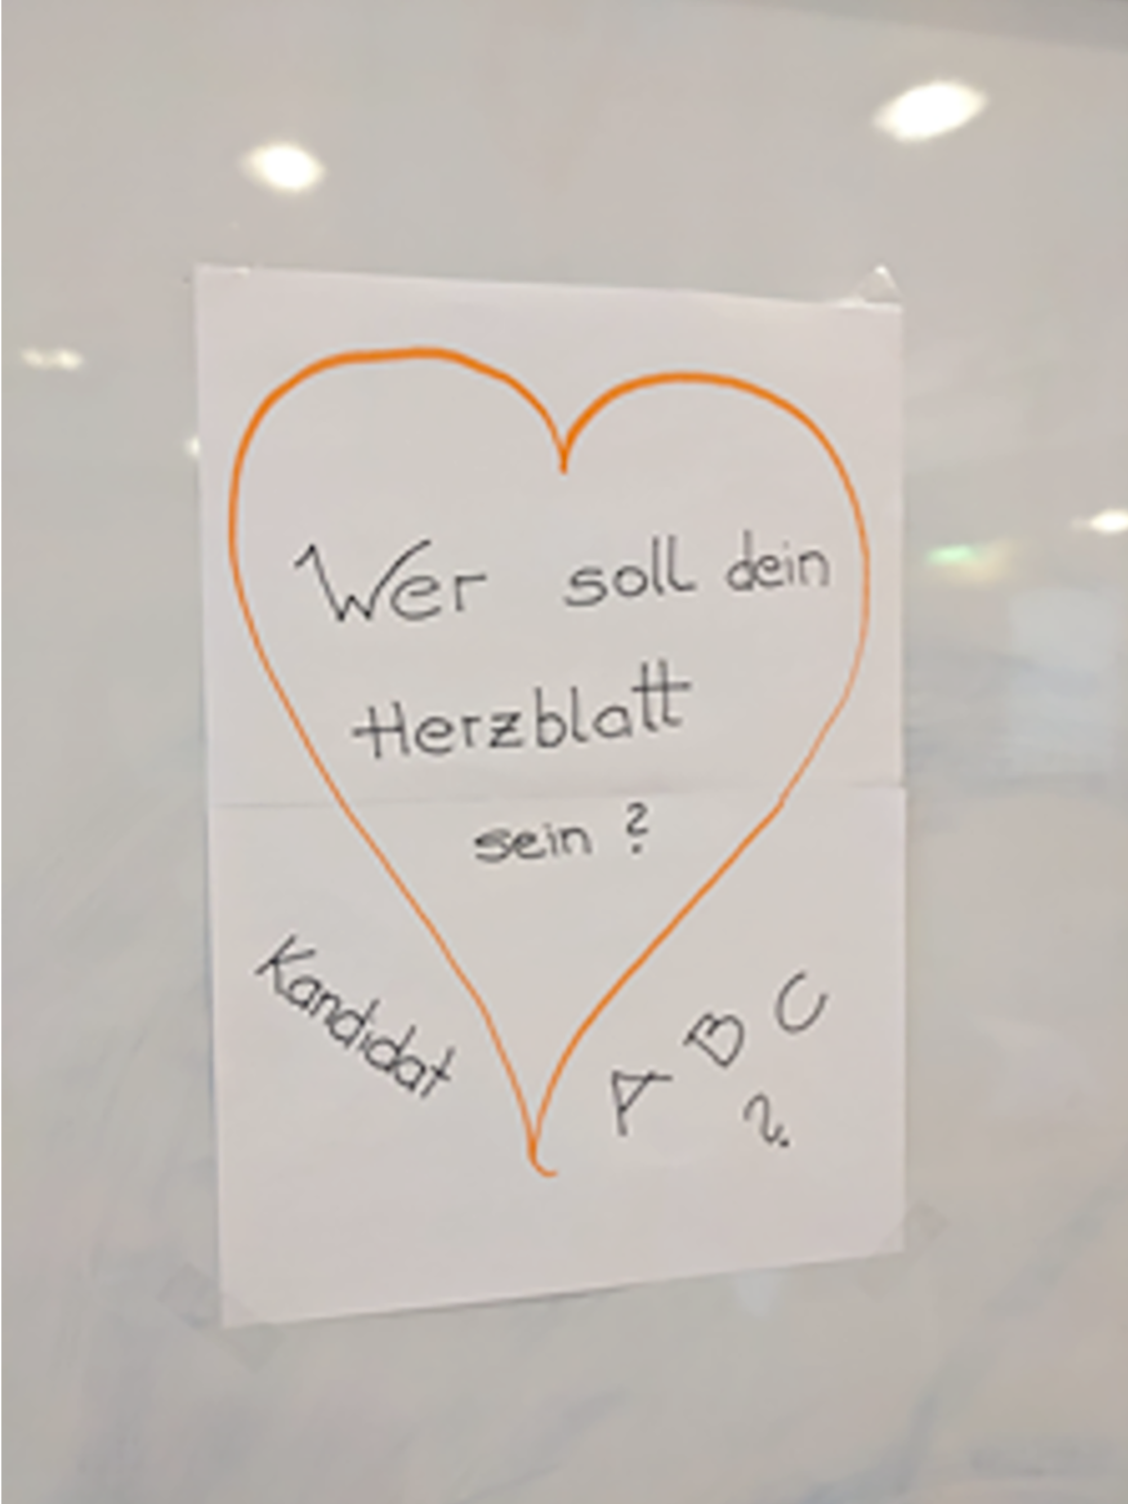 Wer soll dein
Herzblatt
sein ?
Kandidat
A B C
?